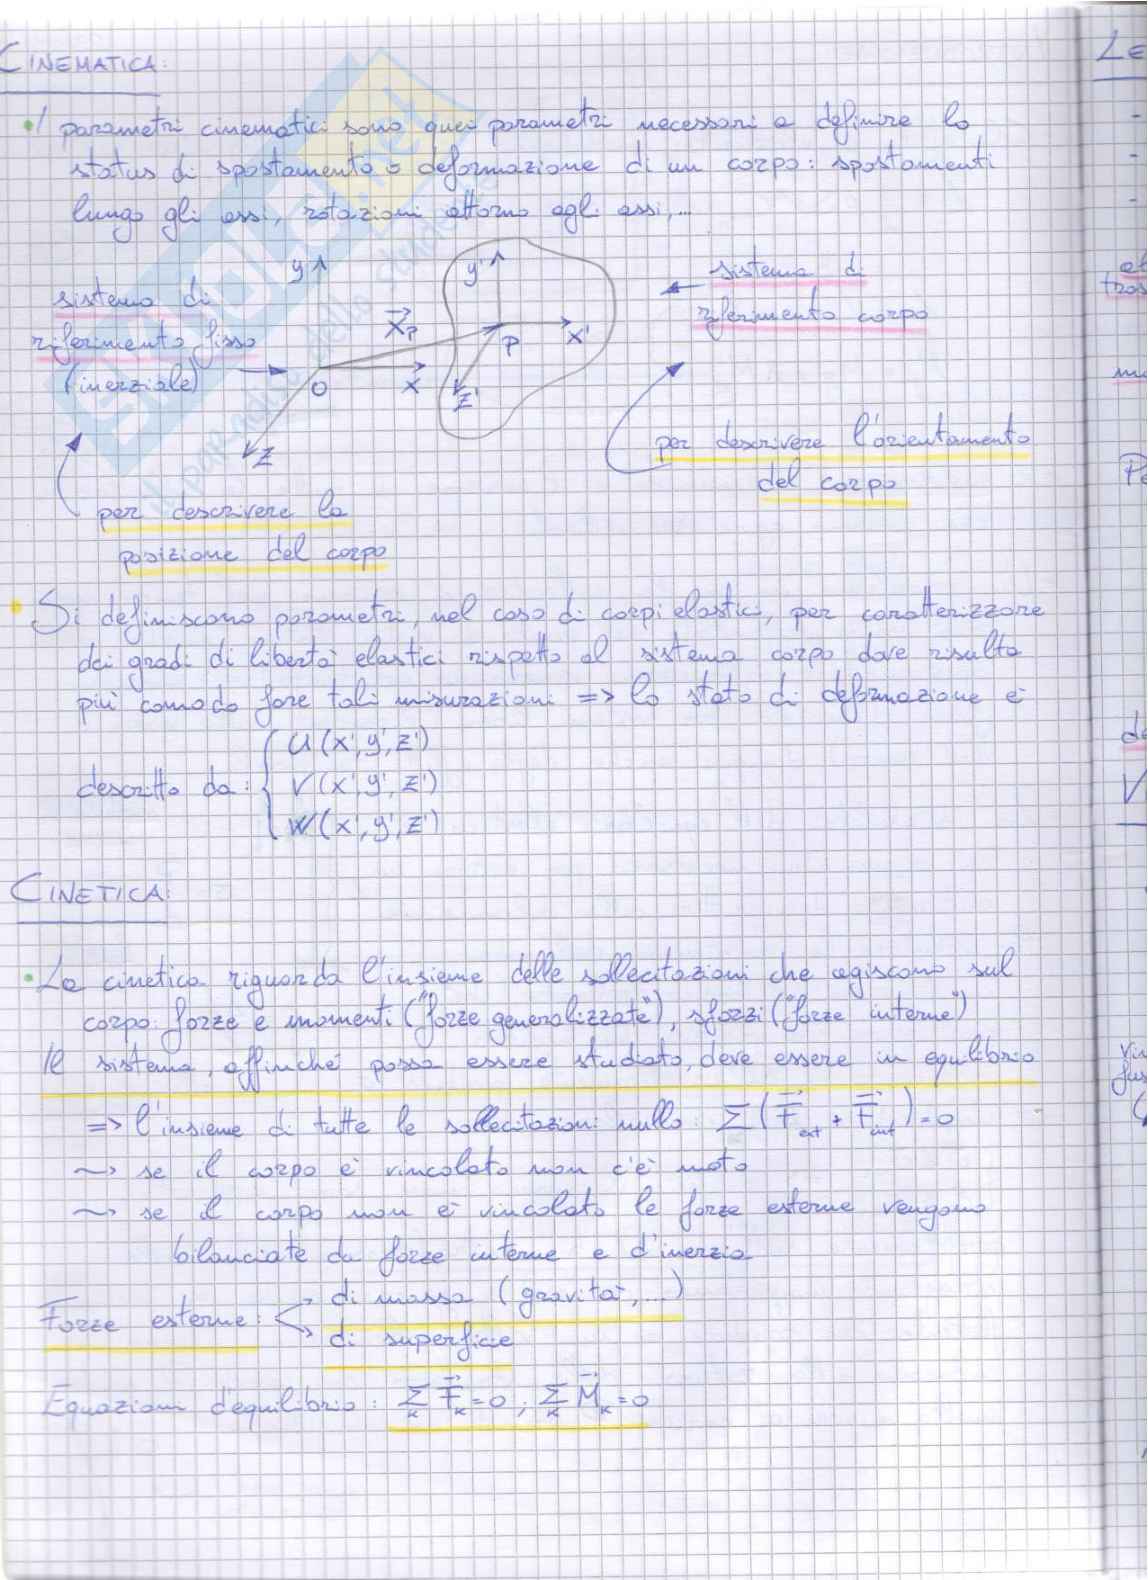 CINEMATICA:
• I parametri cinematici sono quei parametri necessari a definire lo
status di spostamento o deformazione di un corpo: spostamenti
lungo gli assi, rotazioni attorno agli assi,...
y y' sistema di
sistema di riferimento corpo
riferimento fisso X⃗P P x'
(inerziale) O x z'
z
per descrivere l'orientamento
del corpo
per descrivere la
posizione del corpo
• Si definiscono parametri, nel caso di corpi elastici, per caratterizzare
dei gradi di libertà elastici rispetto al sistema corpo dove risulta
più comodo fare tali misurazioni => lo stato di deformazione è
descritto da: { U(x',y',z')
V(x',y',z')
W(x',y',z')
CINETICA:
• La cinetica riguarda l'insieme delle sollecitazioni che agiscono sul
corpo: forze e momenti ("forze generalizzate"), sforzi ("forze interne")
Il sistema, affinché possa essere studiato, deve essere in equlibrio
=> l'insieme di tutte le sollecitazioni nullo: Σ(F⃗ext + F⃗int)=0
~> se il corpo è vincolato non c'è moto
~> se il corpo non è vincolato le forze esterne vengono
bilanciate da forze interne e d'inerzia
Forze esterne: di massa (gravità,...)
di superficie
Equazioni d'equilibrio: Σk F⃗k=0; Σk M⃗k=0
LE
-
-
-
de
V